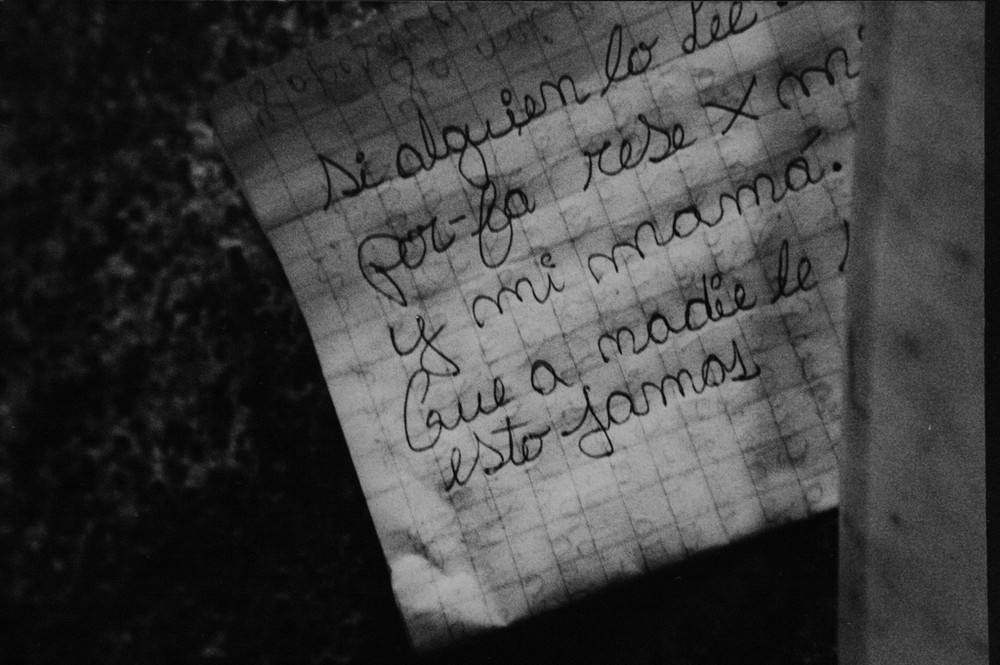 si alguien lo lee
por-fa rese x mi
y mi mamá.
Que a nadie le
esto jamas